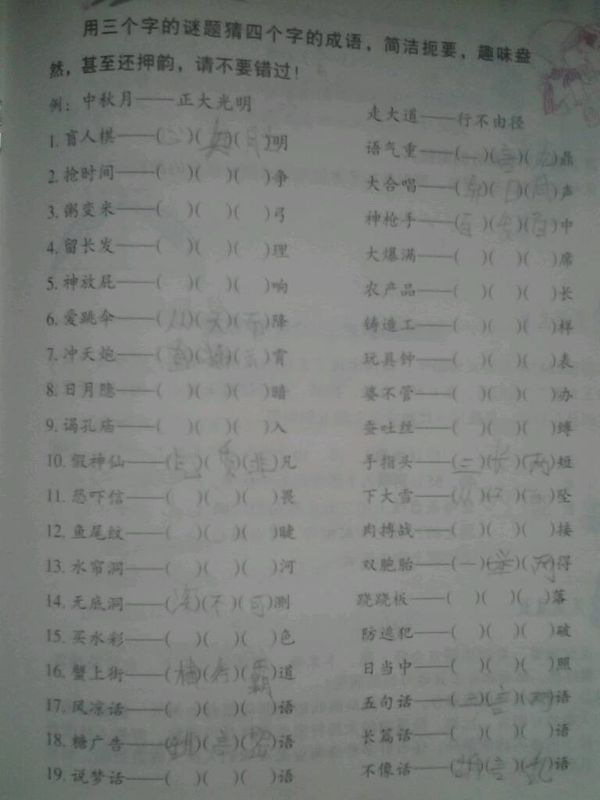 用三个字的谜题猜四个字的成语，简洁扼要，趣味盎
然，甚至还押韵，请不要错过！
例：中秋月——正大光明
1. 盲人棋——( )( )( )明
2. 抢时间——( )( )( )争
3. 粥变米——( )( )( )弓
4. 留长发——( )( )( )理
5. 神放屁——( )( )( )响
6. 爱跳伞——(从)(天)(而)降
7. 冲天炮——(直)( )(云)霄
8. 日月隐——( )( )( )暗
9. 谒孔庙——( )( )( )入
10. 假神仙——( )( )(非)凡
11. 恐吓信——( )( )( )畏
12. 鱼尾纹——( )( )( )睫
13. 水帘洞——( )( )( )河
14. 无底洞——(深)(不)(可)测
15. 买水彩——( )( )( )色
16. 蟹上街——(横)(行)(霸)道
17. 风凉话——( )( )( )语
18. 糖广告——(甜)(言)(蜜)语
19. 说梦话——( )( )( )语
走大道——行不由径
语气重——(一)(言)(九)鼎
大合唱——(异)(口)(同)声
神枪手——(百)(发)(百)中
大爆满——( )( )( )席
农产品——( )( )( )长
铸造工——( )( )( )样
玩具钟——( )( )( )表
婆不管——( )( )( )办
蚕吐丝——( )( )( )缚
手指头——(三)(长)(两)短
下大雪——( )( )( )坠
肉搏战——( )( )( )接
双胞胎——(一)(举)(两)得
跷跷板——( )( )( )落
防逃犯——( )( )( )破
日当中——( )( )( )照
五句话——(三)(言)(两)语
长篇话——( )( )( )语
不像话——(胡)(言)(乱)语